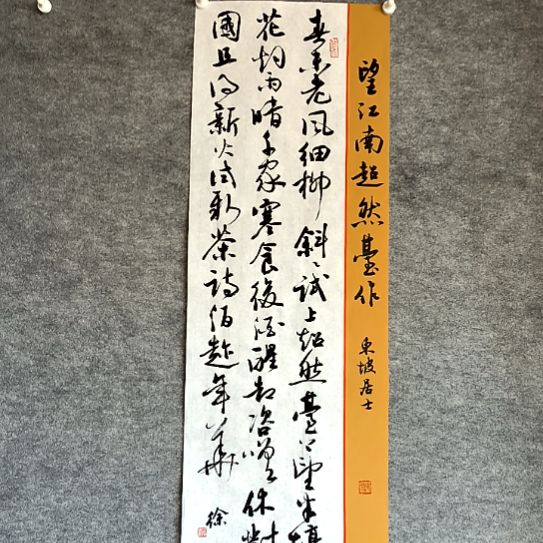 望江南超然臺作 東坡居士
春未老風細柳斜〻試上超然臺上望半
花烟雨暗千家寒食後酒醒却咨嗟休對
國且將新火試新茶詩酒趁年華
徐